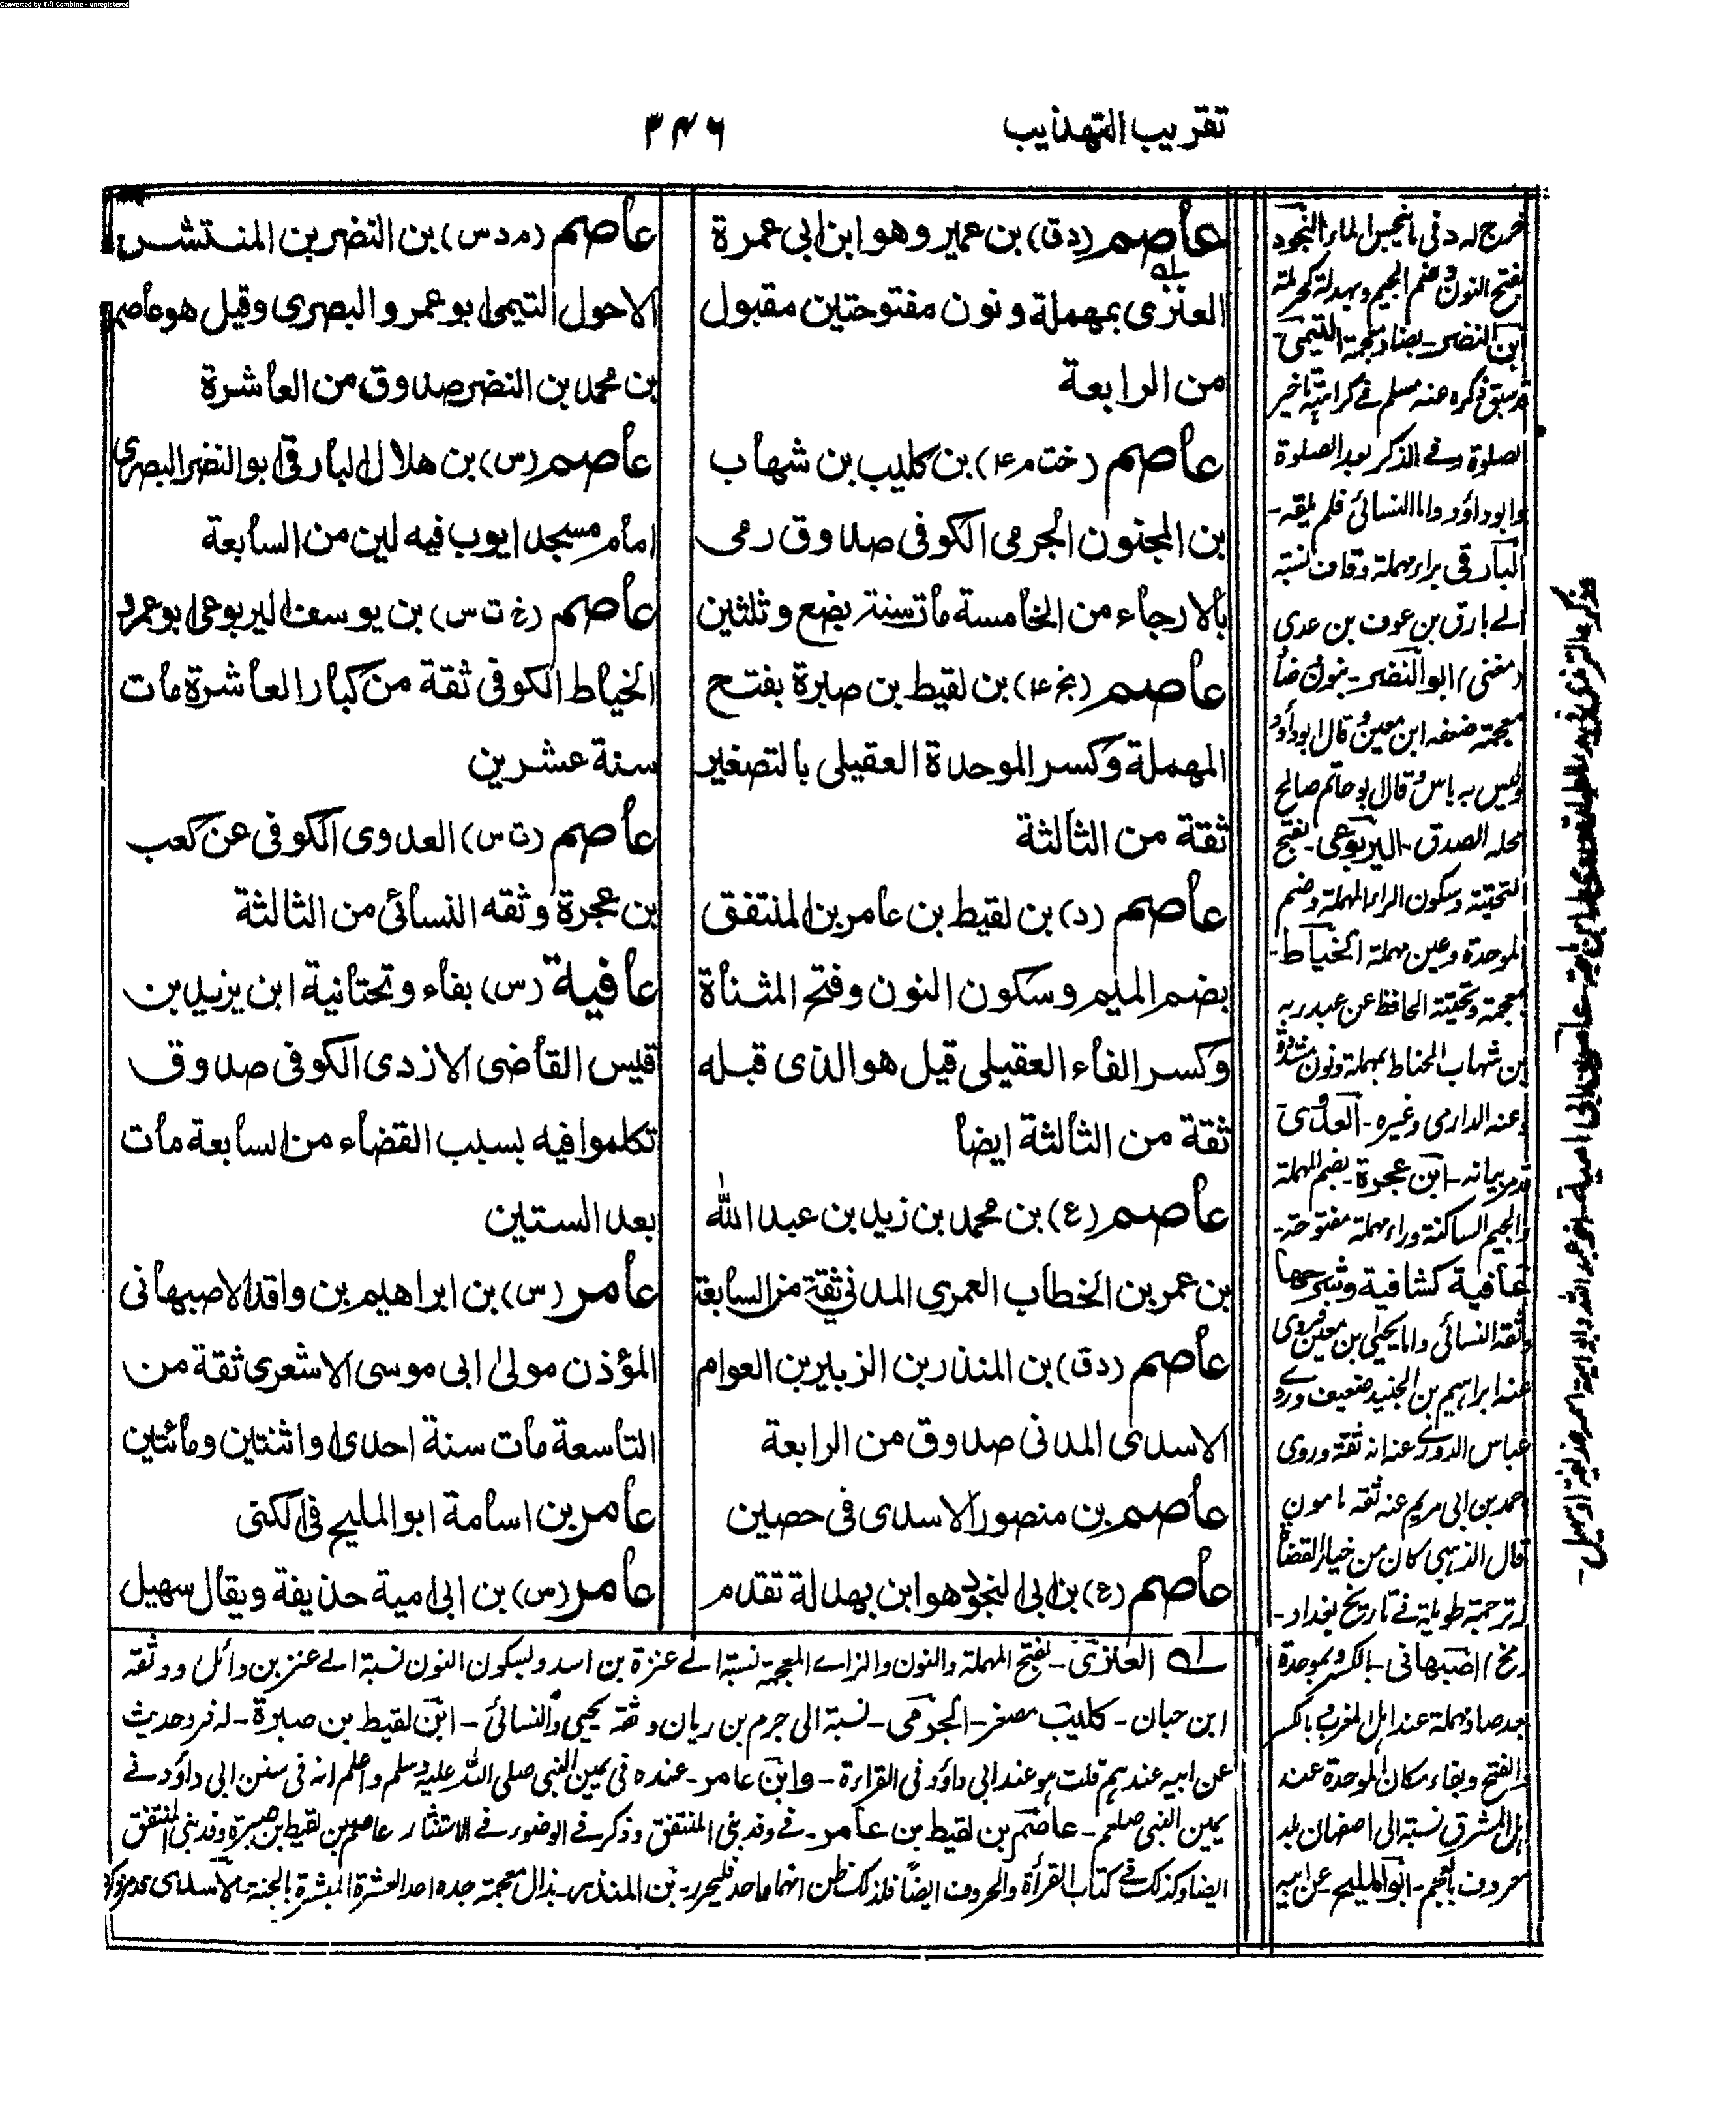 Converted by Tiff Combine - unregistered
تقريب التهذيب
٣٤٦
عاصم (د ق) بن عمير وهو ابن ابى عمرة
العنزى بمهملة ونون مفتوحتين مقبول
من الرابعة
عاصم (خت م ٤) بن كليب بن شهاب
بن المجنون الجرمى الكوفى صدوق رمى
بالارجاء من الخامسة مات سنة بضع وثلثين
عاصم (بخ ٤) بن لقيط بن صبرة بفتح
المهملة وكسر الموحدة العقيلى بالتصغير
ثقة من الثالثة
عاصم (د) بن لقيط بن عامر بن المنتفق
بضم الميم وسكون النون وفتح المثناة
وكسر الفاء العقيلى قيل هو الذى قبله
ثقة من الثالثة ايضا
عاصم (ع) بن محمد بن زيد بن عبد الله
بن عمر بن الخطاب العمرى المدنى ثقة من السابعة
عاصم (د ق) بن المنذر بن الزبير بن العوام
الاسدى المدنى صدوق من الرابعة
عاصم بن منصور الاسدى فى حصين
عاصم (ع) بن ابى النجود هو ابن بهدلة تقدم
عاصم (م د س) بن النضر بن المنتشر
الاحول التيمى ابو عمر والبصرى وقيل هو عاصم
بن محمد بن النضر صدوق من العاشرة
عاصم (س) بن هلال البارقى ابو النضر البصرى
امام مسجد ايوب فيه لين من السابعة
عاصم (خ ت س) بن يوسف اليربوعى ابو عمرو
الخياط الكوفى ثقة من كبار العاشرة مات
سنة عشرين
عاصم (ت س) العدوى الكوفى عن كعب
بن عجرة وثقه النسائى من الثالثة
عافية (س) بفاء وتحتانية ابن يزيد بن
قيس القاضى الازدى الكوفى صدوق
تكلموا فيه بسبب القضاء من السابعة مات
بعد الستين
عامر (س) بن ابراهيم بن واقد الاصبهانى
المؤذن مولى ابى موسى الاشعرى ثقة من
التاسعة مات سنة احدى او اثنتين ومائتين
عامر بن اسامة ابو المليح فى الكنى
عامر (س) بن ابى امية حذيفة ويقال سهيل
له العنزى - بفتح المهملة والنون والزاے المعجمة نسبة الے عنزة بن اسد وبسكون النون نسبة الے عنز بن وائل ووثقه
ابن حبان - كليب مصغر - الجرمى - نسبة الى جرم بن ريان وثقه يحيى والنسائى - ابن لقيط بن صبرة - له فرد حديث
عن ابيه عندهم قلت هو عند ابى داؤد فى القراءة - وابن عامر - عنده فى يمين النبى صلى الله عليه وسلم واعلم انه فى سنن ابى داؤد فے
يمين النبى صلعم - عاصم بن لقيط بن عامر - فے وفد بنى المنتفق وذكر فے الوضوء فے الاستنثار عاصم بن لقيط بن صبرة وفد بنى المنتفق
ايضا وكذلك فے كتاب القرأة والحروف ايضاً فلذلك ظن انهما واحد فليحرر - بن المنذر - بذال معجمة جده احد العشرة المبشرة بالجنة - الاسدى
خرج له د فى ما ينجس الماء النجود
بفتح النون وضم الجيم وبهدلة كحرملة
ابن النضر - بضاد معجمة التيمى
قد سبق ذكره عنه مسلم فے تاخير
الصلوة وفے الذكر بعد الصلوة
وابو داؤد واما النسائى فلم يلقه -
البارقى براء مهملة وقاف نسبة
الے بارق بن عوف بن عدى
(مغنى) ابو النضر - بنون ضا
معجمة ضعفه ابن معين قال ابو داؤد
وليس به باس وقال ابو حاتم صالح
محله الصدق - اليربوعى - بفتح
التحتية وسكون الراء المهملة وضم
الموحدة وعين مهملة الخياط -
معجمة وتحتية الحافظ عن عبد ربه
بن شهاب الحناط بمهملة ونون مشددة
وعنه الدارمى وغيره - العدوى
قد مر بيانه - ابن عجرة - بضم المهملة
والجيم الساكنة وراء مهملة مفتوحة -
عافية كشافية وشرحها
وثقه النسائى واما يحيى بن معين فروى
عنه ابراهيم بن الجنيد ضعيف وروى
عباس الدورى عنه انه ثقة وروى
احمد بن ابى مريم عنه ثقة مامون
قال الذهبى كان من خيار القضاة
له ترجمة طويلة فے تاريخ بغداد -
(مخ) اصبهانى - بالكسر وبموحدة
بعد صاد مهملة عند اهل المغرب وبالكسر
والفتح وبفاء مكان الموحدة عند
اهل المشرق نسبة الى اصفهان بلد
معروف بالعجم - ابو المليح - عن ابيه